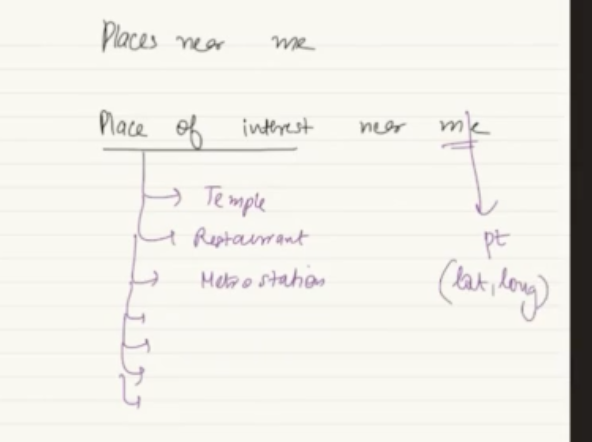 Places near me
Place of interest near me
Temple
Restaurant
pt
Metro station
(lat, long)